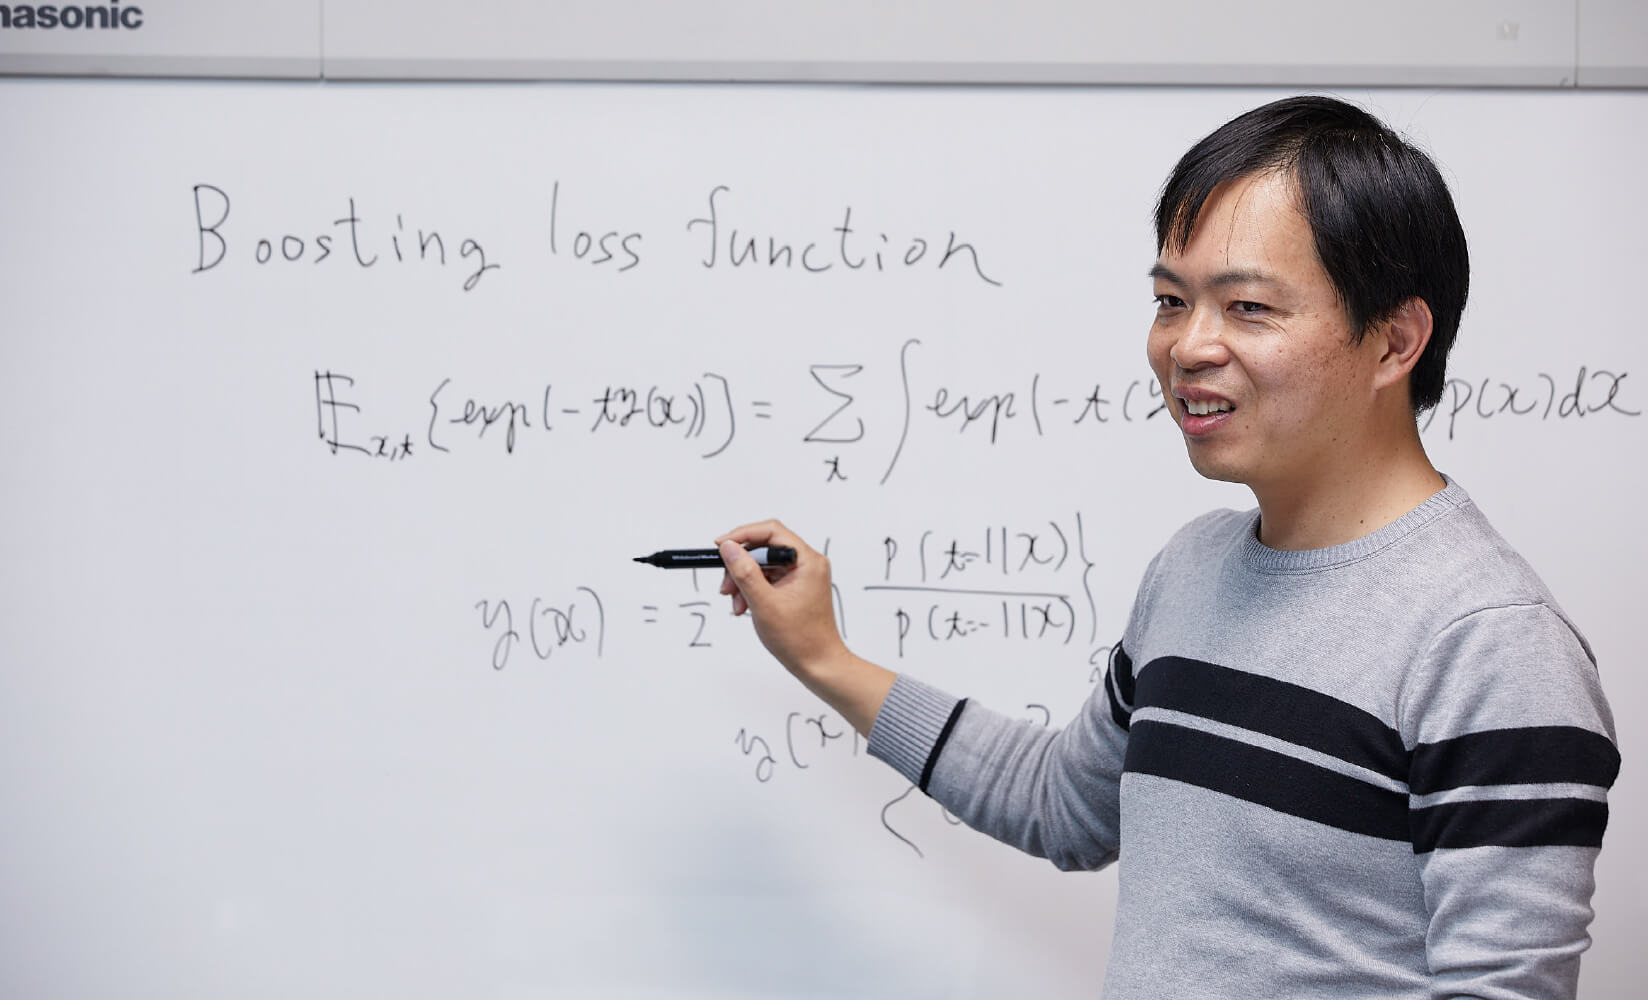 nasonic
Boosting loss function
𝔼x,t {exp(-ty(x))} = Σx ∫ exp(-t(y )p(x)dx
y(x) = 1/2 { p(t=1|x) / p(t=-1|x) }
y(x)